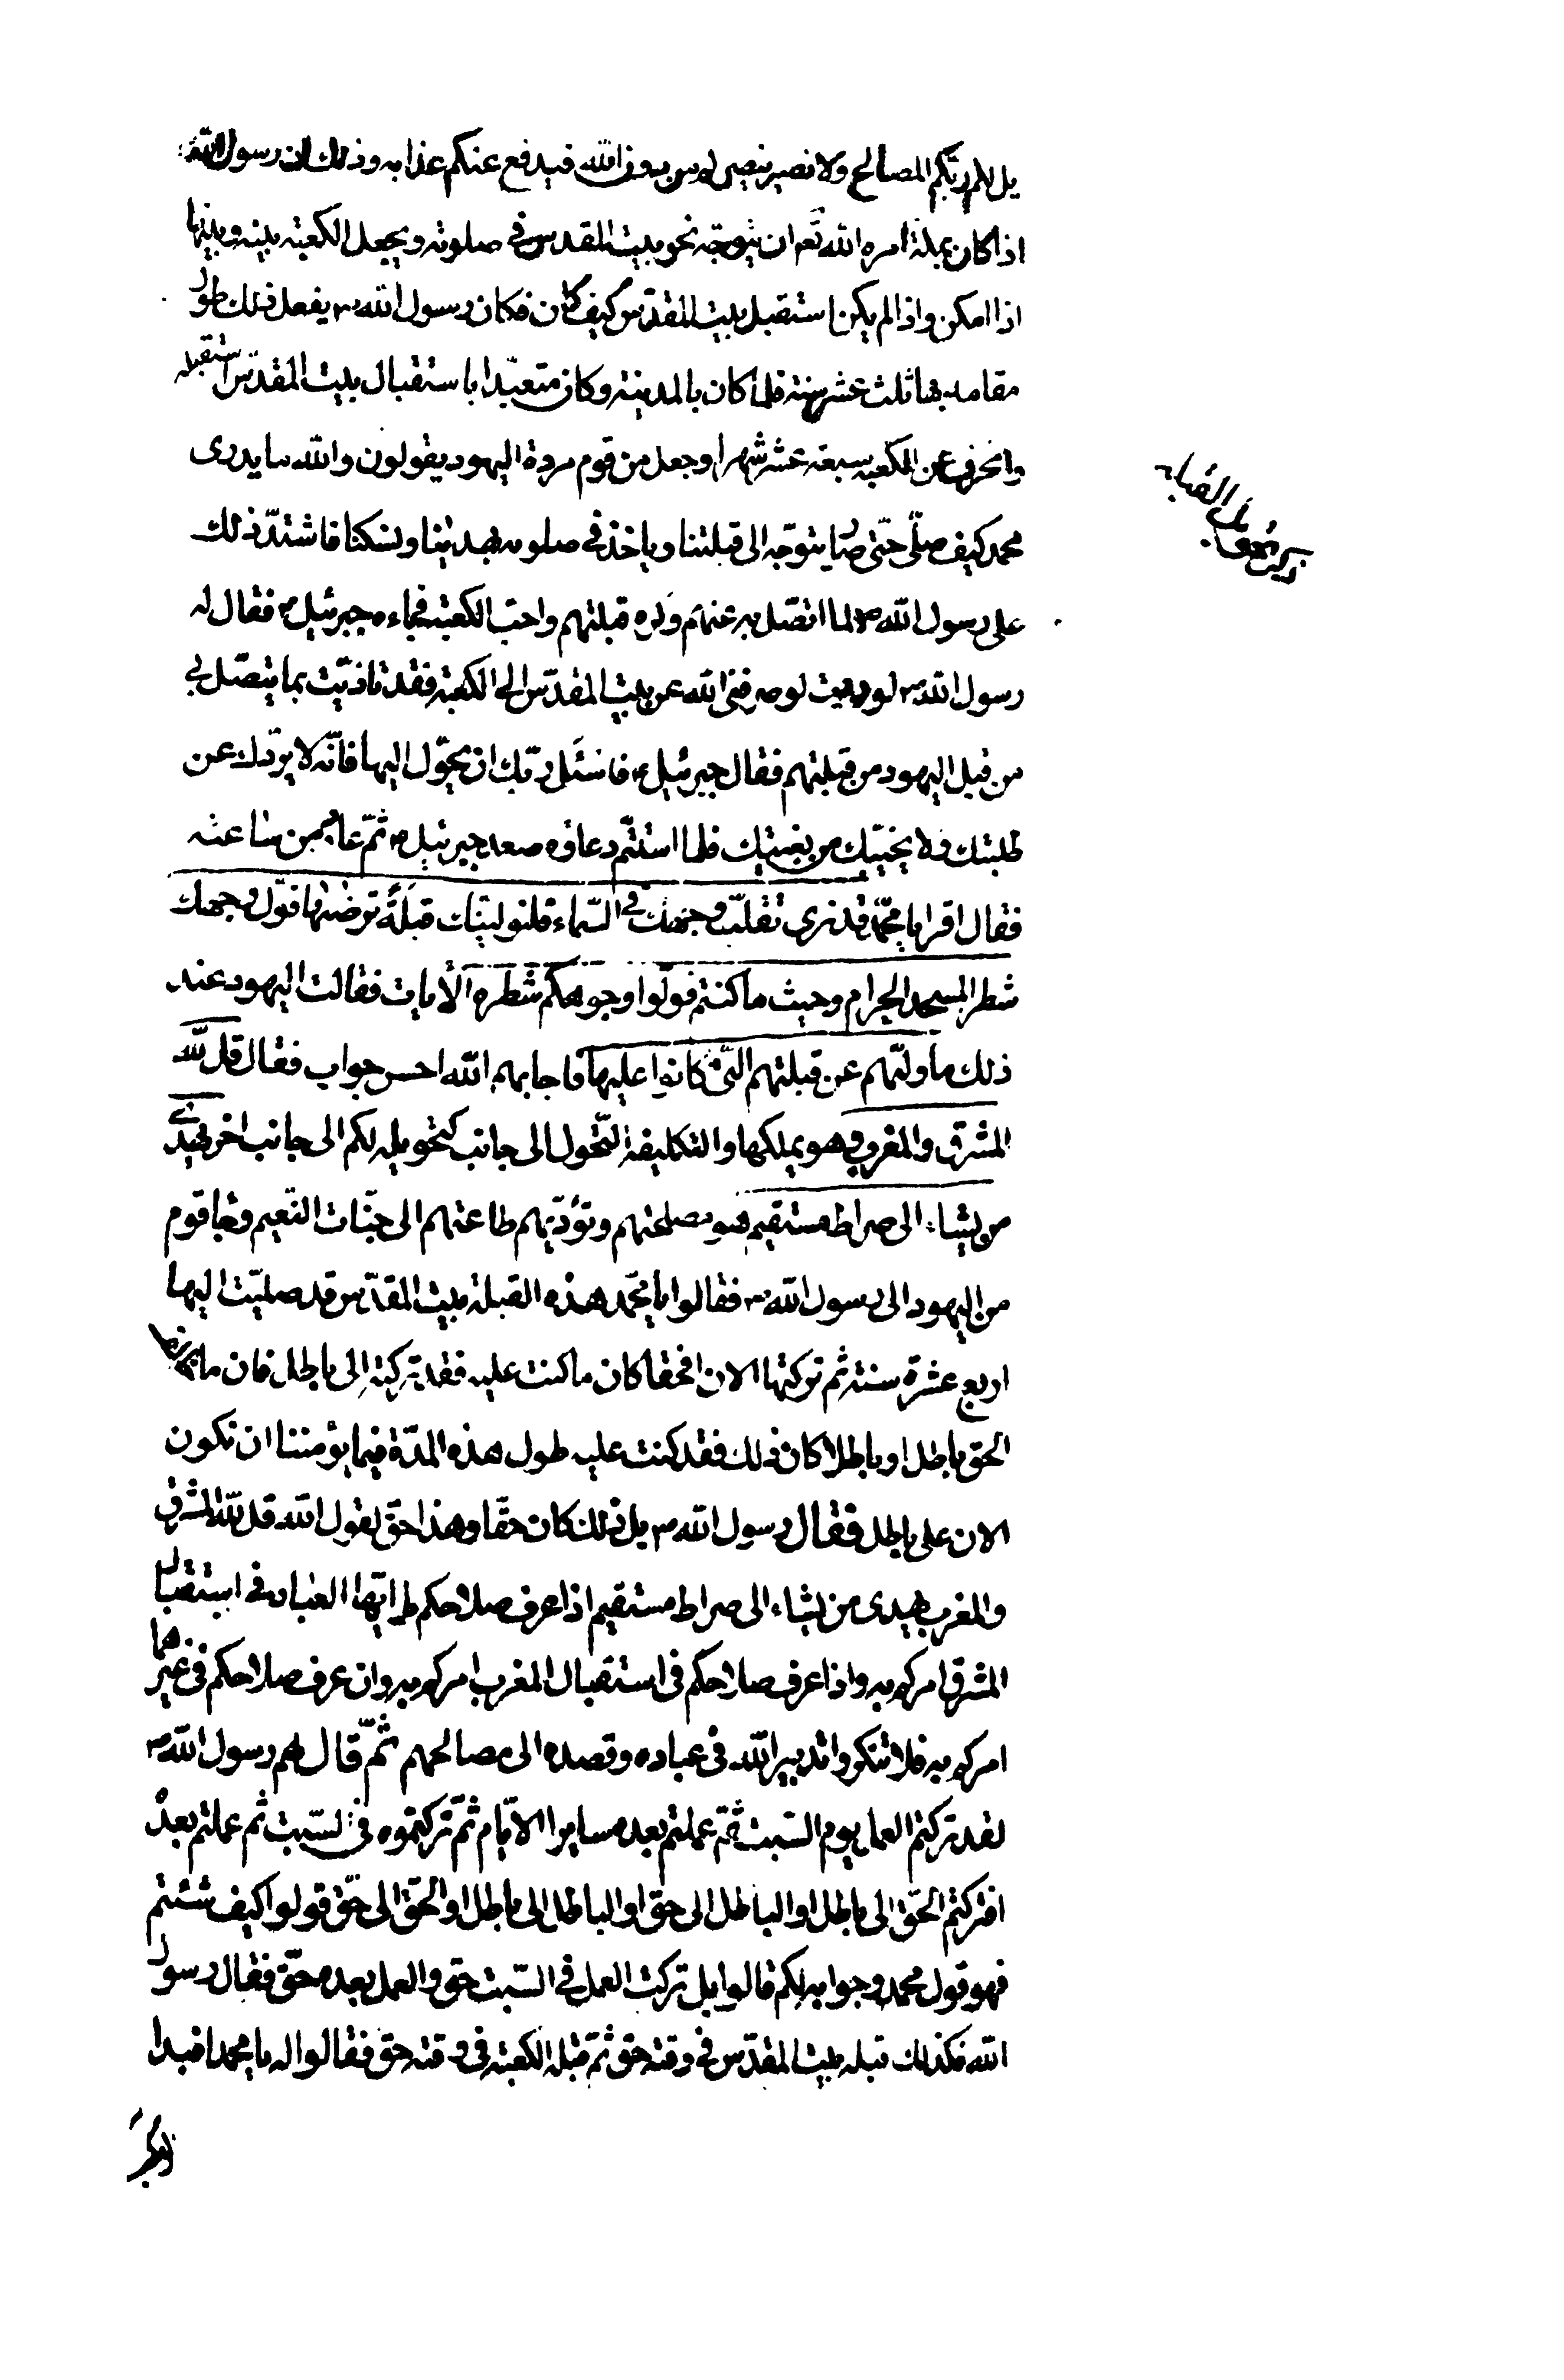 يل لكم ربكم المصالح ولا نصير ينصركم من دون الله فيدفع عنكم عذابه وذلك ان رسول الله
اذا كان بمكة امره الله تعم ان يتوجه نحو بيت المقدس في صلوته ويجعل الكعبة بينه وبينها
اذا امكن واذا لم يكن استقبل بيت المقدس كيف كان فكان رسول الله ص يفعل ذلك طول
مقامه بها ثلث عشر سنة فلما كان بالمدينة وكان متعبدا باستقبال بيت المقدس استقبله
وانحرف عن الكعبة سبعة عشر شهرا وجعل من قوم مردة اليهود يقولون والله ما يدرى
محمد كيف صلى حتى صار يتوجه الى قبلتنا وياخذ في صلوته بهدينا ونسكنا فاشتد ذلك
على رسول الله ص لما اتصل به عنهم وكره قبلتهم واحب الكعبة فجاءه جبرئيل ع فقال له
رسول الله ص لوددت لو صرفنى الله عن بيت المقدس الى الكعبة فقد تاذيت بما يتصل بي
من قبل اليهود من قبلتهم فقال جبرئيل ع فاسئل ربك ان يحولك اليها فانه لا يردك عن
طلبتك ولا يخيبك من بغيتك فلما استتم دعاؤه صعد جبرئيل ع ثم عاد من ساعته
فقال اقرا يا محمد قد نرى تقلب وجهك في السماء فلنولينك قبلة ترضيها فول وجهك
شطر المسجد الحرام وحيث ما كنتم فولوا وجوهكم شطره الايات فقالت اليهود عند
ذلك ما وليهم عن قبلتهم التي كانوا عليها فاجابهم الله احسن جواب فقال قل لله
المشرق والمغرب وهو يملكها والتكليفه التحول الى جانب كتحويله لكم الى جانب اخر يهدى
من يشاء الى صراط مستقيم هو مصلحتهم وتؤديهم طاعتهم الى جنات النعيم وجا قوم
من اليهود الى رسول الله ص فقالوا يا محمد هذه القبلة بيت المقدس قد صليت اليها
اربع عشرة سنة ثم تركتها الان افحقا كان ما كنت عليه فقد تركته الى باطل فان ما يخالف
الحق باطل او باطلا كان ذلك فقد كنت عليه طول هذه المدة فيما يؤمننا ان تكون
الان على باطل فقال رسول الله ص بل ذلك كان حقا وهذا حق يقول الله قل لله المشرق
والمغرب يهدى من يشاء الى صراط مستقيم اذا عرف صلاحكم يا ايها العباد في استقبال
المشرق امركم به واذا عرف صلاحكم في استقبال المغرب امركم به وان عرف صلاحكم في غيرهما
امركم به فلا تنكروا تدبير الله في عباده وقصده الى مصالحهم ثم قال لهم رسول الله ص
لقد تركتم العمل يوم السبت ثم عملتم بعده ساير الايام ثم تركتموه في السبت ثم عملتم بعده
افتركتم الحق الى باطل او الباطل الى حق او الباطل الى باطل او الحق الى حق قولوا كيف شئتم
فهو قول محمد وجوابه لكم قالوا بل ترك العمل في السبت حق والعمل بعده حق فقال رسول
الله فكذلك قبلة بيت المقدس في وقته حق ثم قبلة الكعبة في وقته حق فقالوا له يا محمد افبدا